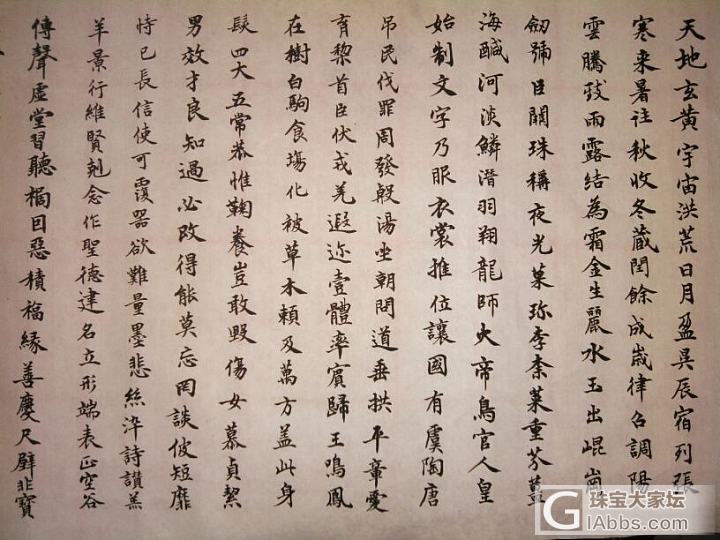 天地玄黃宇宙洪荒日月盈昃辰宿列張
寒来暑往秋收冬藏閏餘成歲律召調陽
雲騰致雨露結為霜金生麗水玉出崐崗
劒號巨闕珠稱夜光菓珍李柰菜重芥薑
海鹹河淡鱗潛羽翔龍師火帝鳥官人皇
始制文字乃服衣裳推位讓國有虞陶唐
吊民伐罪周發殷湯坐朝問道垂拱平章愛
育黎首臣伏戎羌遐迩壹體率賓歸王鳴鳳
在樹白駒食場化被草木賴及萬方盖此身
髮四大五常恭惟鞠養豈敢毀傷女慕貞絜
男效才良知過必改得能莫忘罔談彼短靡
恃己長信使可覆器欲難量墨悲絲淬詩讃羔
羊景行維賢剋念作聖德建名立形端表正空谷
傳聲虛堂習聽禍因惡積福緣善慶尺璧非寶
珠宝大家坛
GIAbbs.com